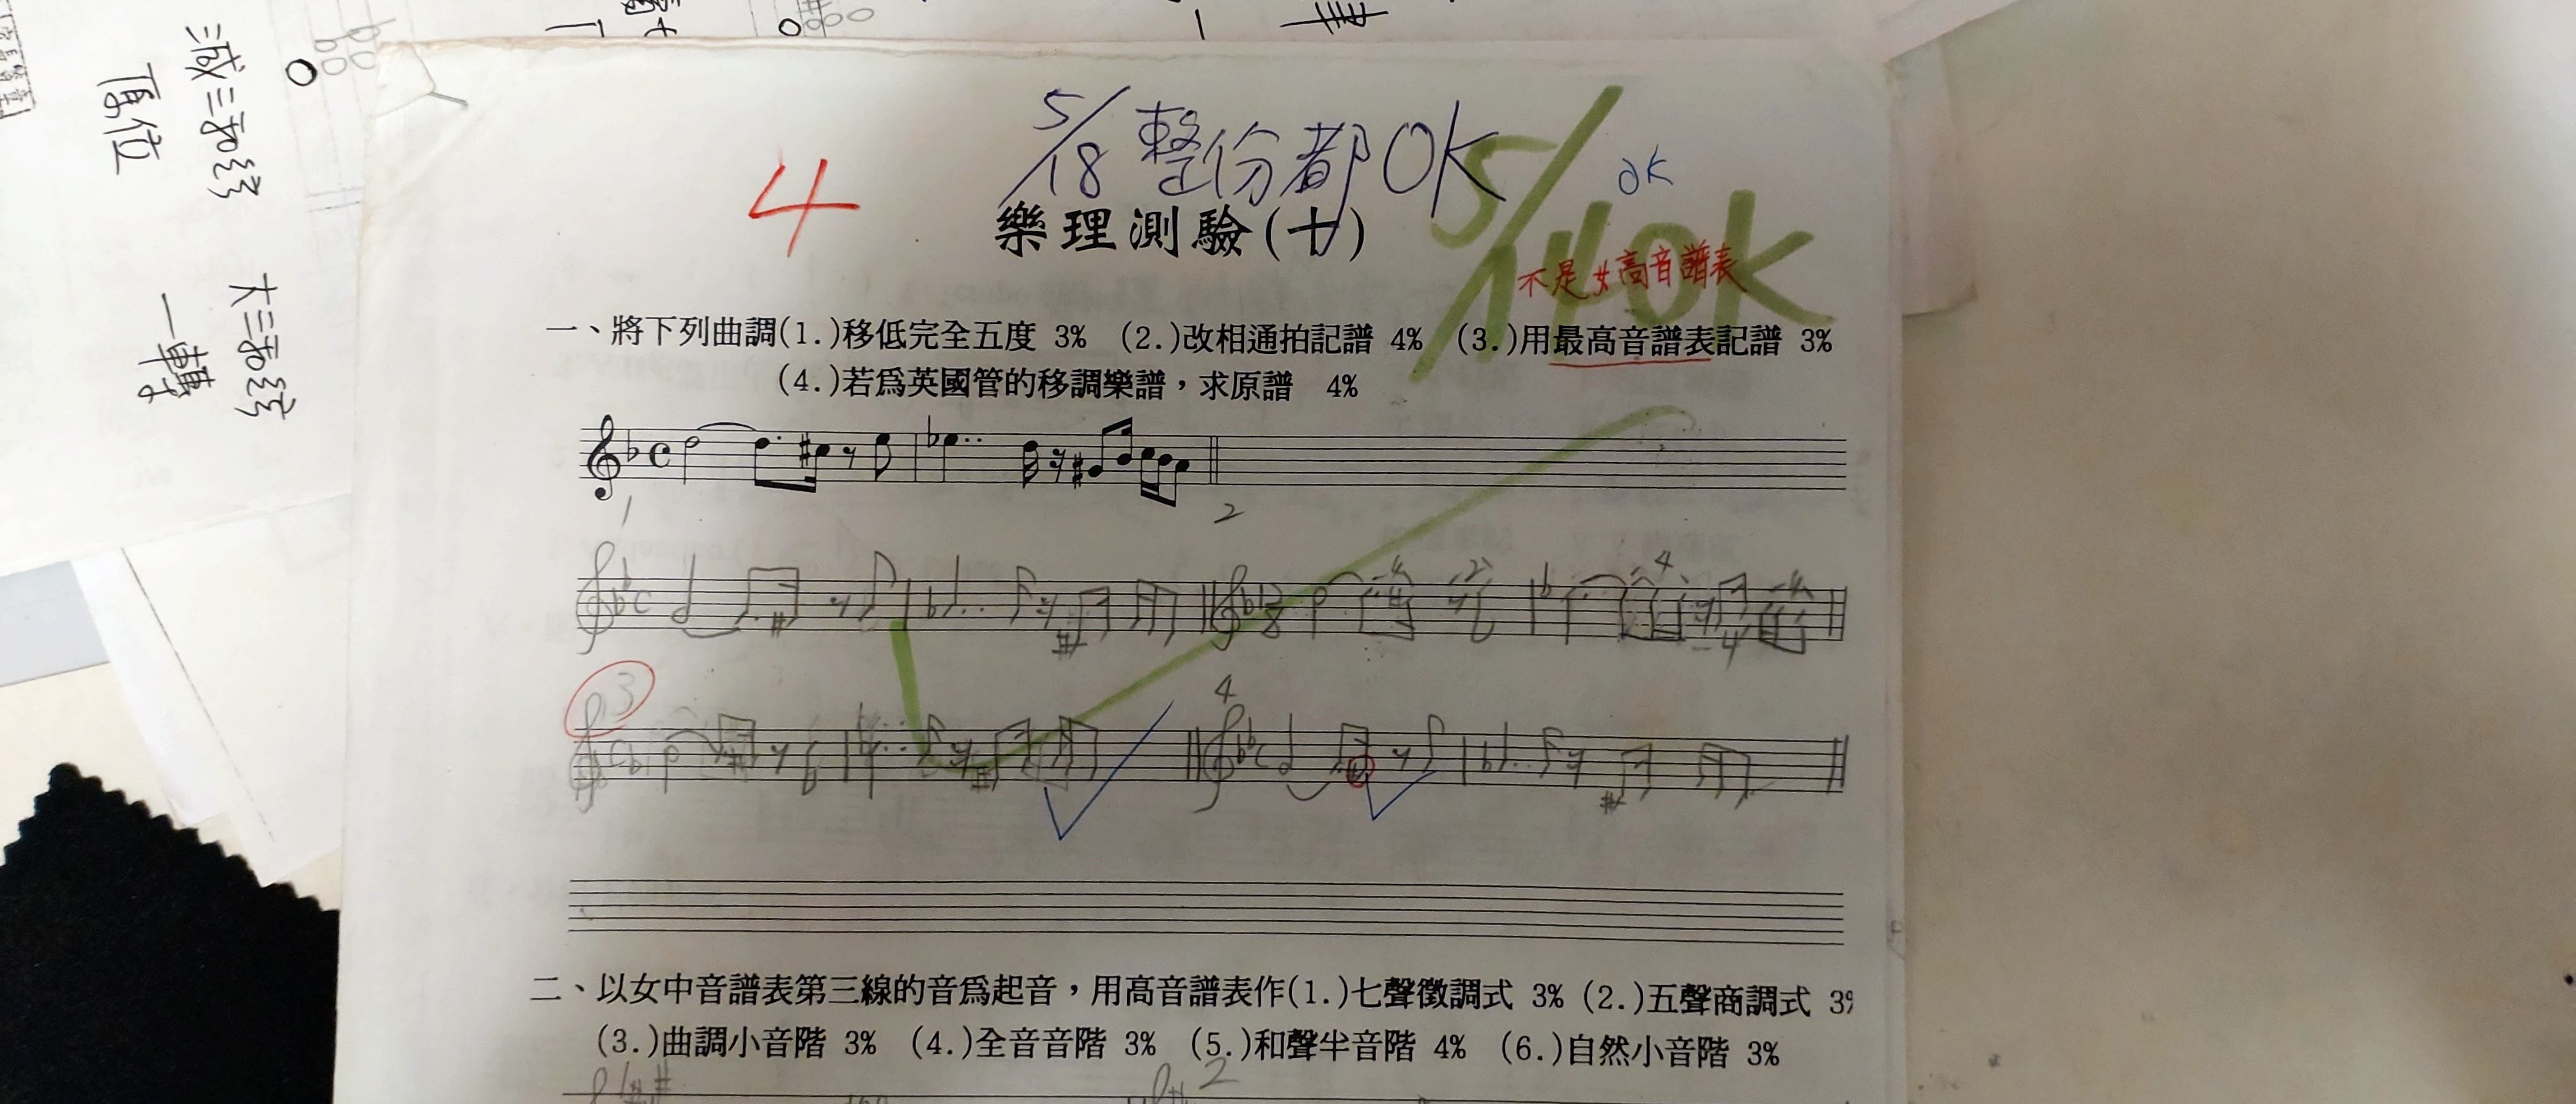 減三和絃
原位
大三和絃
一轉
5/18 整份都OK
5/14 OK
OK
4
樂理測驗(十)
不是女高音譜表
一、將下列曲調(1.)移低完全五度 3% (2.)改相通拍記譜 4% (3.)用最高音譜表記譜 3%
(4.)若為英國管的移調樂譜，求原譜 4%
1
2
3
4
二、以女中音譜表第三線的音為起音，用高音譜表作(1.)七聲徵調式 3% (2.)五聲商調式 3%
(3.)曲調小音階 3% (4.)全音音階 3% (5.)和聲半音階 4% (6.)自然小音階 3%
2